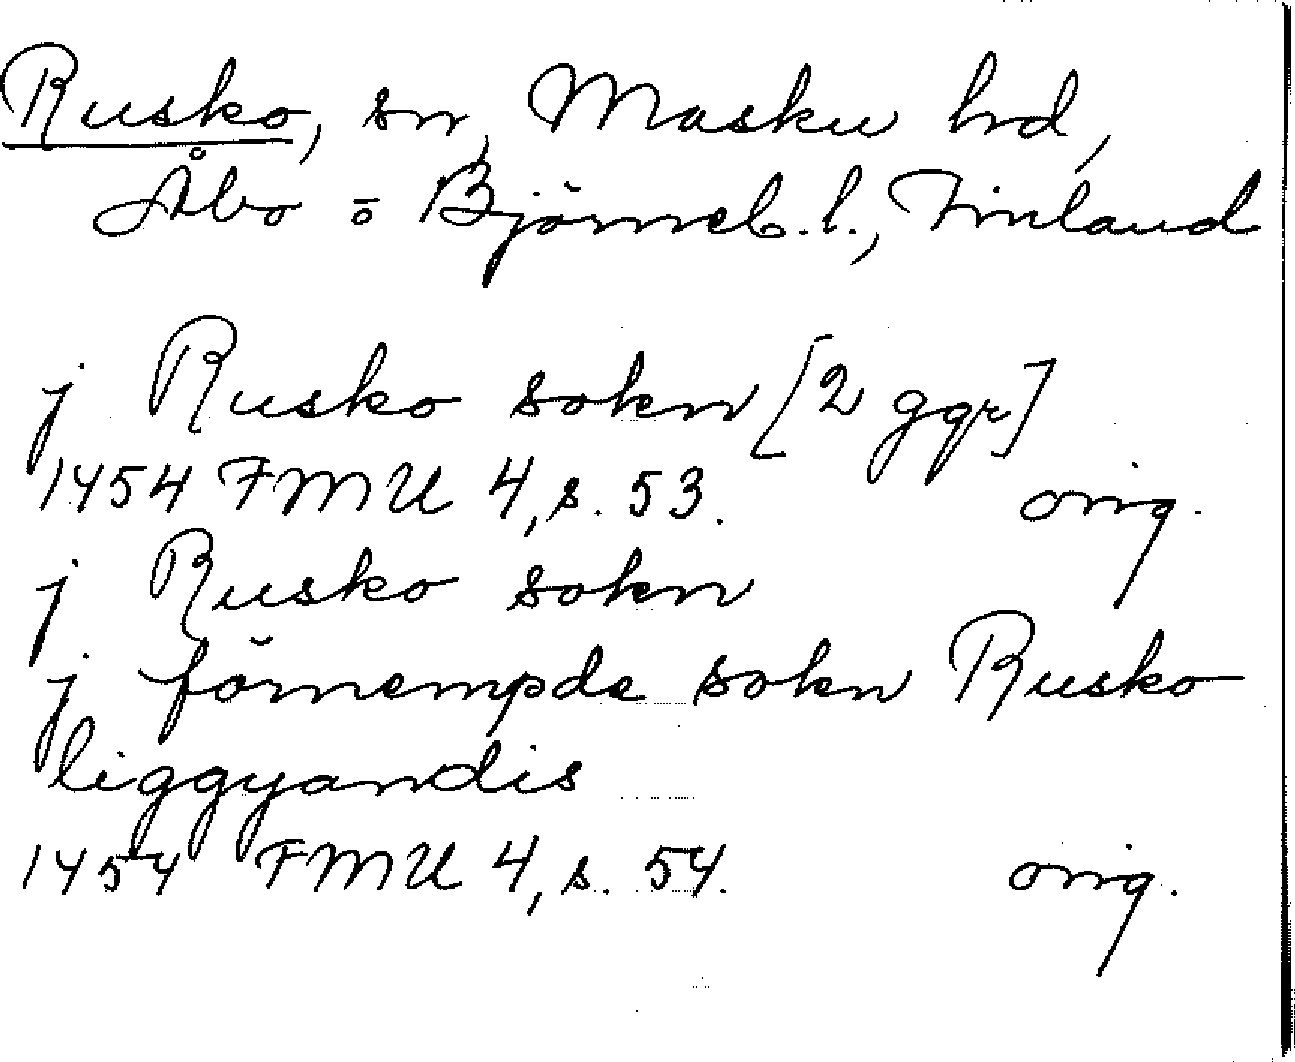 Rusko, sn, Masku hrd,
Åbo o Björneb. l., Finland
j Rusko sokn [2 ggr]
1454 FMU 4, s. 53. orig.
j Rusko sokn
j förnempde sokn Rusko
liggyandis
1454 FMU 4, s. 54. orig.